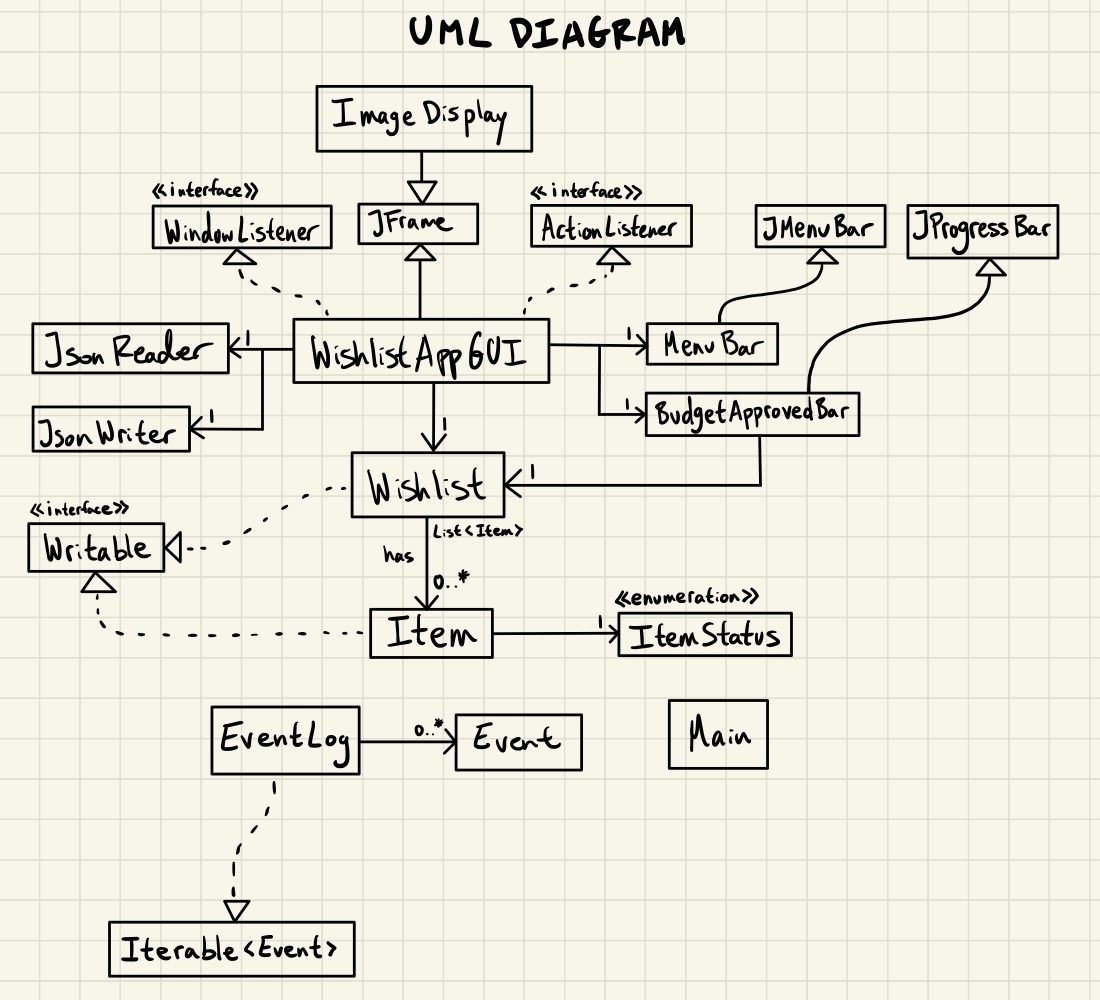 UML DIAGRAM
Image Display
<<interface>>
WindowListener
JFrame
<<interface>>
ActionListener
JMenuBar
JProgressBar
Json Reader
1
WishlistAppGUI
1
MenuBar
JsonWriter
1
1
BudgetApprovedBar
1
Wishlist
1
<<interface>>
Writable
List<Item>
has
0..*
Item
1
<<enumeration>>
ItemStatus
EventLog
0..*
Event
Main
Iterable<Event>